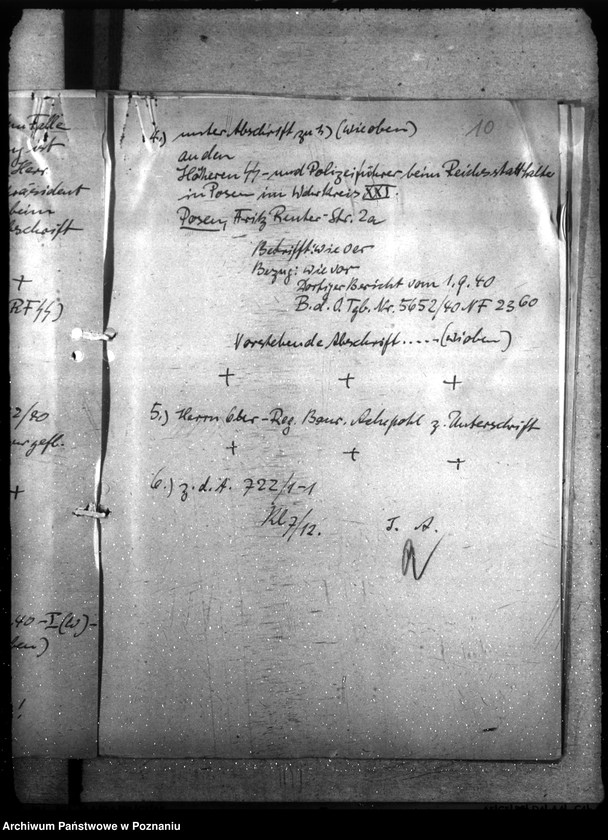 10
4.) unter Abschrift zu 3) (wie oben)
an den
Höheren SS- und Polizeiführer beim Reichsstatthalter
in Posen im Wehrkreis XXI.
Posen, Fritz Reuter-Str. 2a
Betrifft: wie vor
Bezug: wie vor
Dortiger Bericht vom 1.9.40
B.d.O. Tgb. Nr. 5652/40 NF 23 60
Vorstehende Abschrift ..... (wie oben)
+ + +
5.) Herrn Ober-Reg. Baur. Achepohl z. Unterschrift
+ + +
6.) z.d.A. 722/1-1
Kl 7/12. I. A.
im Falle
ist
Herr
präsident
beim
bschrift
+
RFSS)
2/40
gefl.
+
40-I(W)-
ben)
!
Archiwum Państwowe w Poznaniu